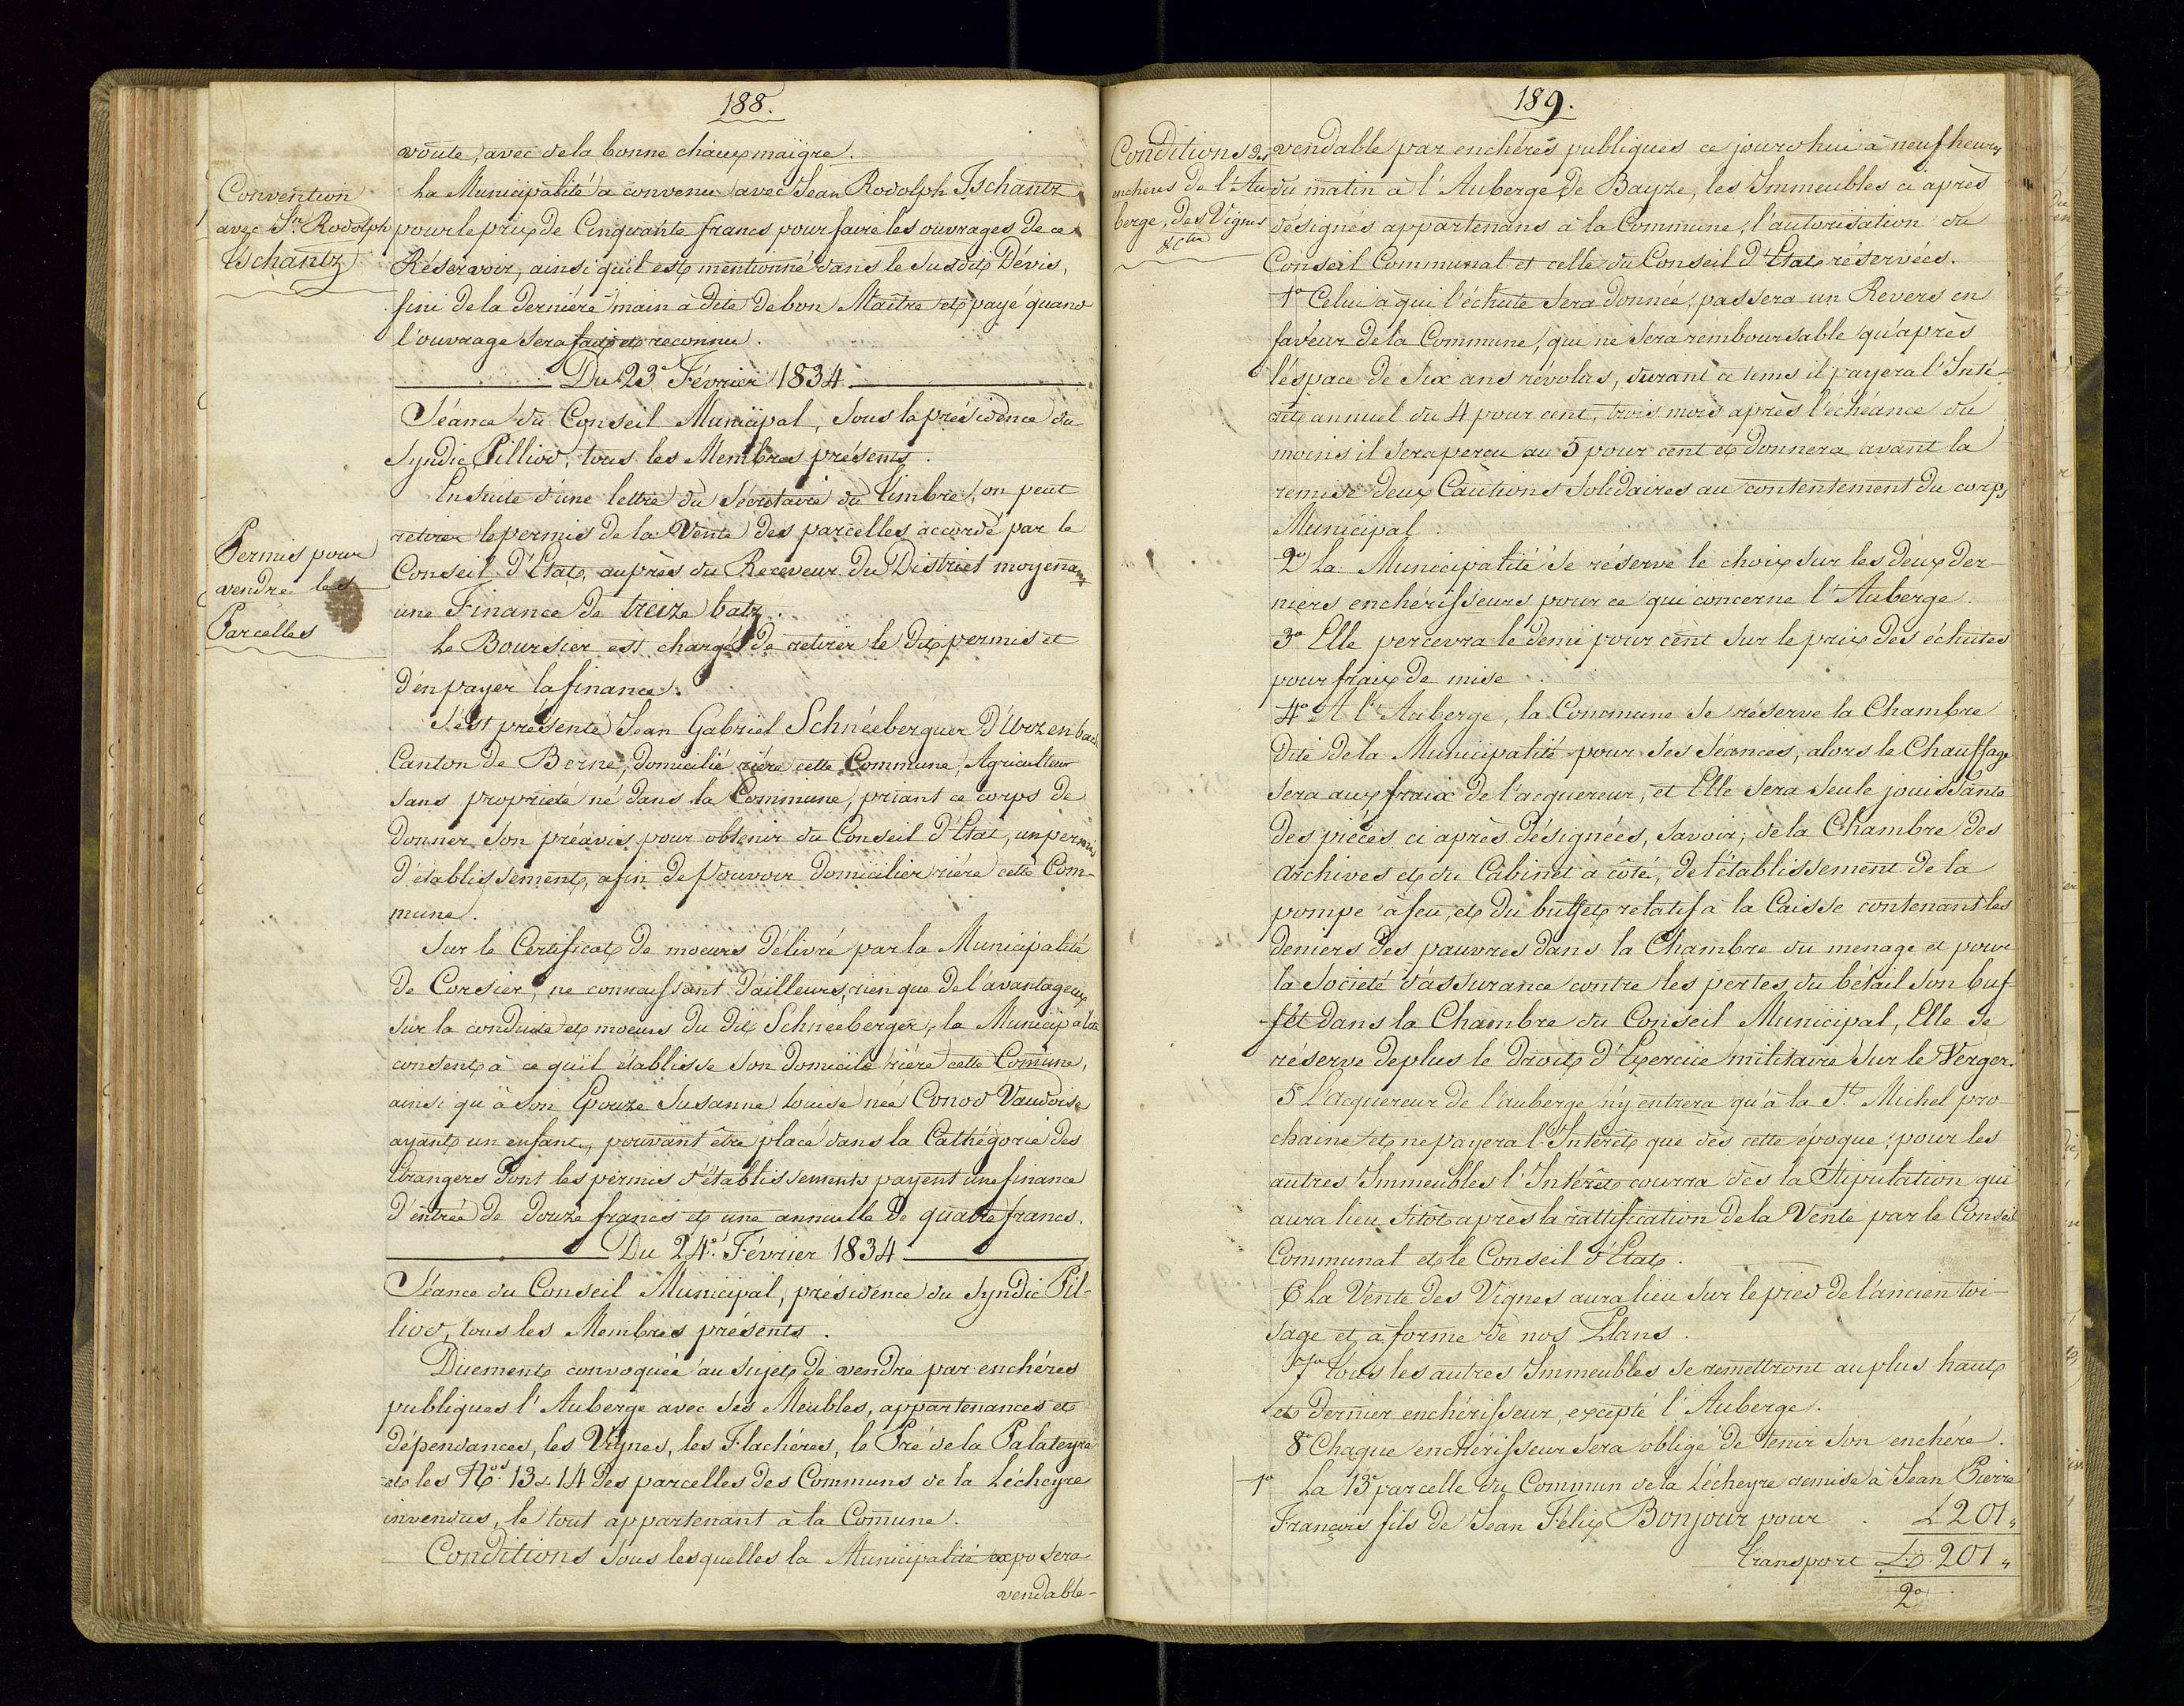 188.
voute, avec de la bonne chaux maïgre.
Convention
avec Jn Rodolph
Tschantz
La Municipalité a convenu avec Jean Rodolph Tschantz
pour le prix de Cinquante francs pour faire les ouvrages de ce
Réservoir, ainsi quil est mentionné dans le susdit Dévis,
fini de la derniére main à dite de bon Maître et payé quand
l'ouvrage sera fait et reconnu.
Du 23e Février 1834
Séance du Conseil Municipal, sous la présidence du
Syndic Pilliod, tous les Membres présents.
Permis pour
vendre les
Parcelles
Ensuite d'une lettre du Sécretaire du timbre, on peut
retirer le permis de la Vente des parcelles accordé par le
Conseil d'Etat, auprès du Receveur du District moyenant
une Finance de treize batz.
Le Boursier est chargé de retirer le dit permis et
d'en payer la finance.
S'est présenté Jean Gabriel Schnéeberguer d'Urzenbach
Canton de Berne, domicilié riére cette Commune, Agriculteur
sans propriété né dans la Commune, priant ce corps de
donner son préavis pour obtenir du Conseil d'Etat, un permis
d'établissement, afin de pouvoir domicilier riére cette Com-
mune.
Sur le Certificat de moeurs délivré par la Municipalité
de Corsier, ne connaissant d'ailleurs, rien que de l'avantageux
sur la conduite et moeurs du dit Schnéeberger, la Municipalité
consent à ce qu'il établisse son domicile riére cette Comune,
ainsi qu'à son Epouze Susanne Louise née Conod Vaudoise
ayant un enfant, pouvant être placé dans la Cathégorie des
Etrangers dont les permis d'établissements payent une finance
d'entrée de douze francs et une annuelle de quatre francs.
Du 24e. Février 1834
Séance du Conseil Municipal, présidence du Syndic Pil-
liod, tous les Membres présents.
Duement convoquée au sujet de vendre par enchéres
publiques l'Auberge avec ses Meubles, appartenances et
dépendances, les Vignes, les Flachéres, le Pré de la Palateyre
et les Nos. 13 & 14 des parcelles des Communs de la Lécheyre
invendus, le tout appartenant à la Comune.
Conditions sous lesquelles la Municipalité exposera
vendable-
189.
Conditions des
enchéres de l'Au
berge, des Vignes
&cra
vendable par enchéres publiques ce jourdhui à neuf heures
du matin à l'Auberge de Bayze, les Immeubles ci après
désignés appartenans à la Commune, l'autorisation du
Conseil Communal et celle du Conseil d'Etat réservées.
1o Celui à qui l'échute sera donnée, passera un Revers en
faveur de la Commune, qui ne sera remboursable qu'après
l'éspace de Six ans révolus, durant ce tems il payera l'Inté-
rêt annuel du 4 pour cent, trois mois après l'échéance du
moins il sera perçu au 5 pour cent et donnera avant la
remise deux Cautions Solidaires au contentement du corps
Municipal.
2o La Municipalité se réserve le choix sur les deux der-
niers enchérisseurs pour ce qui concerne l'Auberge.
3o Elle percevra le demi pour cent sur le prix des échutes
pour fraix de mise.
4o A l'Auberge, la Commune se réserve la Chambre
dite de la Municipalité pour ses séances, alors le Chauffage
sera aux fraix de l'acquereur, et Elle sera seule jouissante
des piéces ci après désignées, savoir; de la Chambre des
archives et du Cabinet à côté, de l'établissement de la
pompe à feu, et du buffet relatif à la Caisse contenant les
deniers des pauvres dans la Chambre du menage et pour
la Société d'assurance contre les pertes du bétail son buf
fet dans la Chambre du Conseil Municipal, Elle se
réserve de plus le droit d'Exercice militaire sur le Verger.
5o L'acquereur de l'auberge n'y entrera qu'à la St. Michel pro
chaine et ne payera l'Intérêt que dès cette époque; pour les
autres Immeubles l'Intérêt courra dès la Stipulation qui
aura lieu sitôt après la rattification de la Vente par le Conseil
Communal et le Conseil d'Etat.
6 La Vente des Vignes aura lieu sur le pied de l'ancien toi-
sage et à forme de nos Plans.
7o Tous les autres Immeubles se remettront au plus haut
et dernier enchérisseur, excepté l'Auberge.
8o Chaque enchérisseur sera obligé de tenir son enchére.
1o La 13e parcelle du Commun de la Lécheyre remise à Jean Pierre
François fils de Jean Félix Bonjour pour . L 201 "
transport L. 201 "
2o